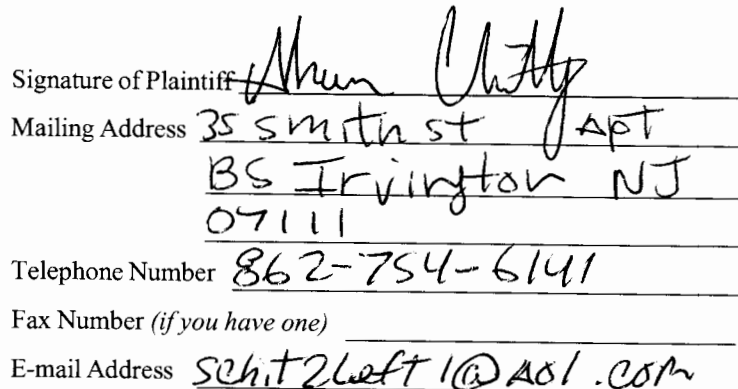 Signature of Plaintiff
Mailing Address 35 Smith st Apt
B5 Irvington NJ
07111
Telephone Number 862-754-6141
Fax Number (if you have one)
E-mail Address